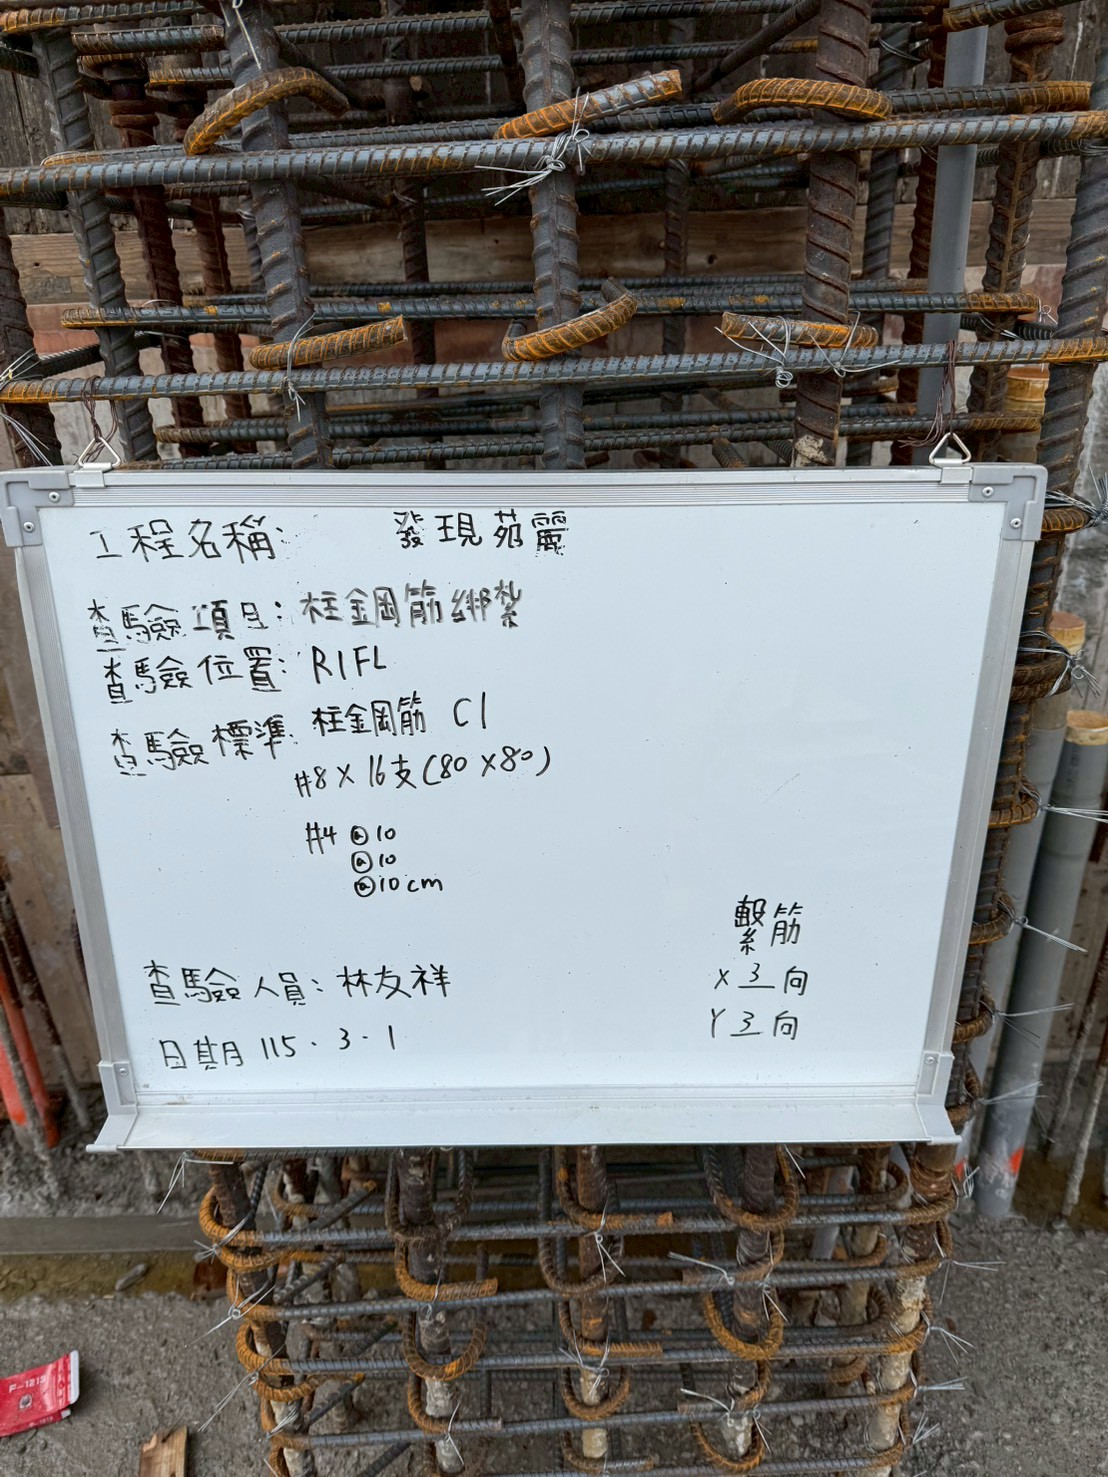 工程名稱: 發現苑麗
查驗項目: 柱鋼筋綁紮
查驗位置: R1FL
查驗標準: 柱鋼筋 C1
#8 X 16支(80 X80)
#4 @10
@10
@10cm
繫筋
X 3 向
Y 3 向
查驗人員: 林友祥
日期 115.3.1
F-1213